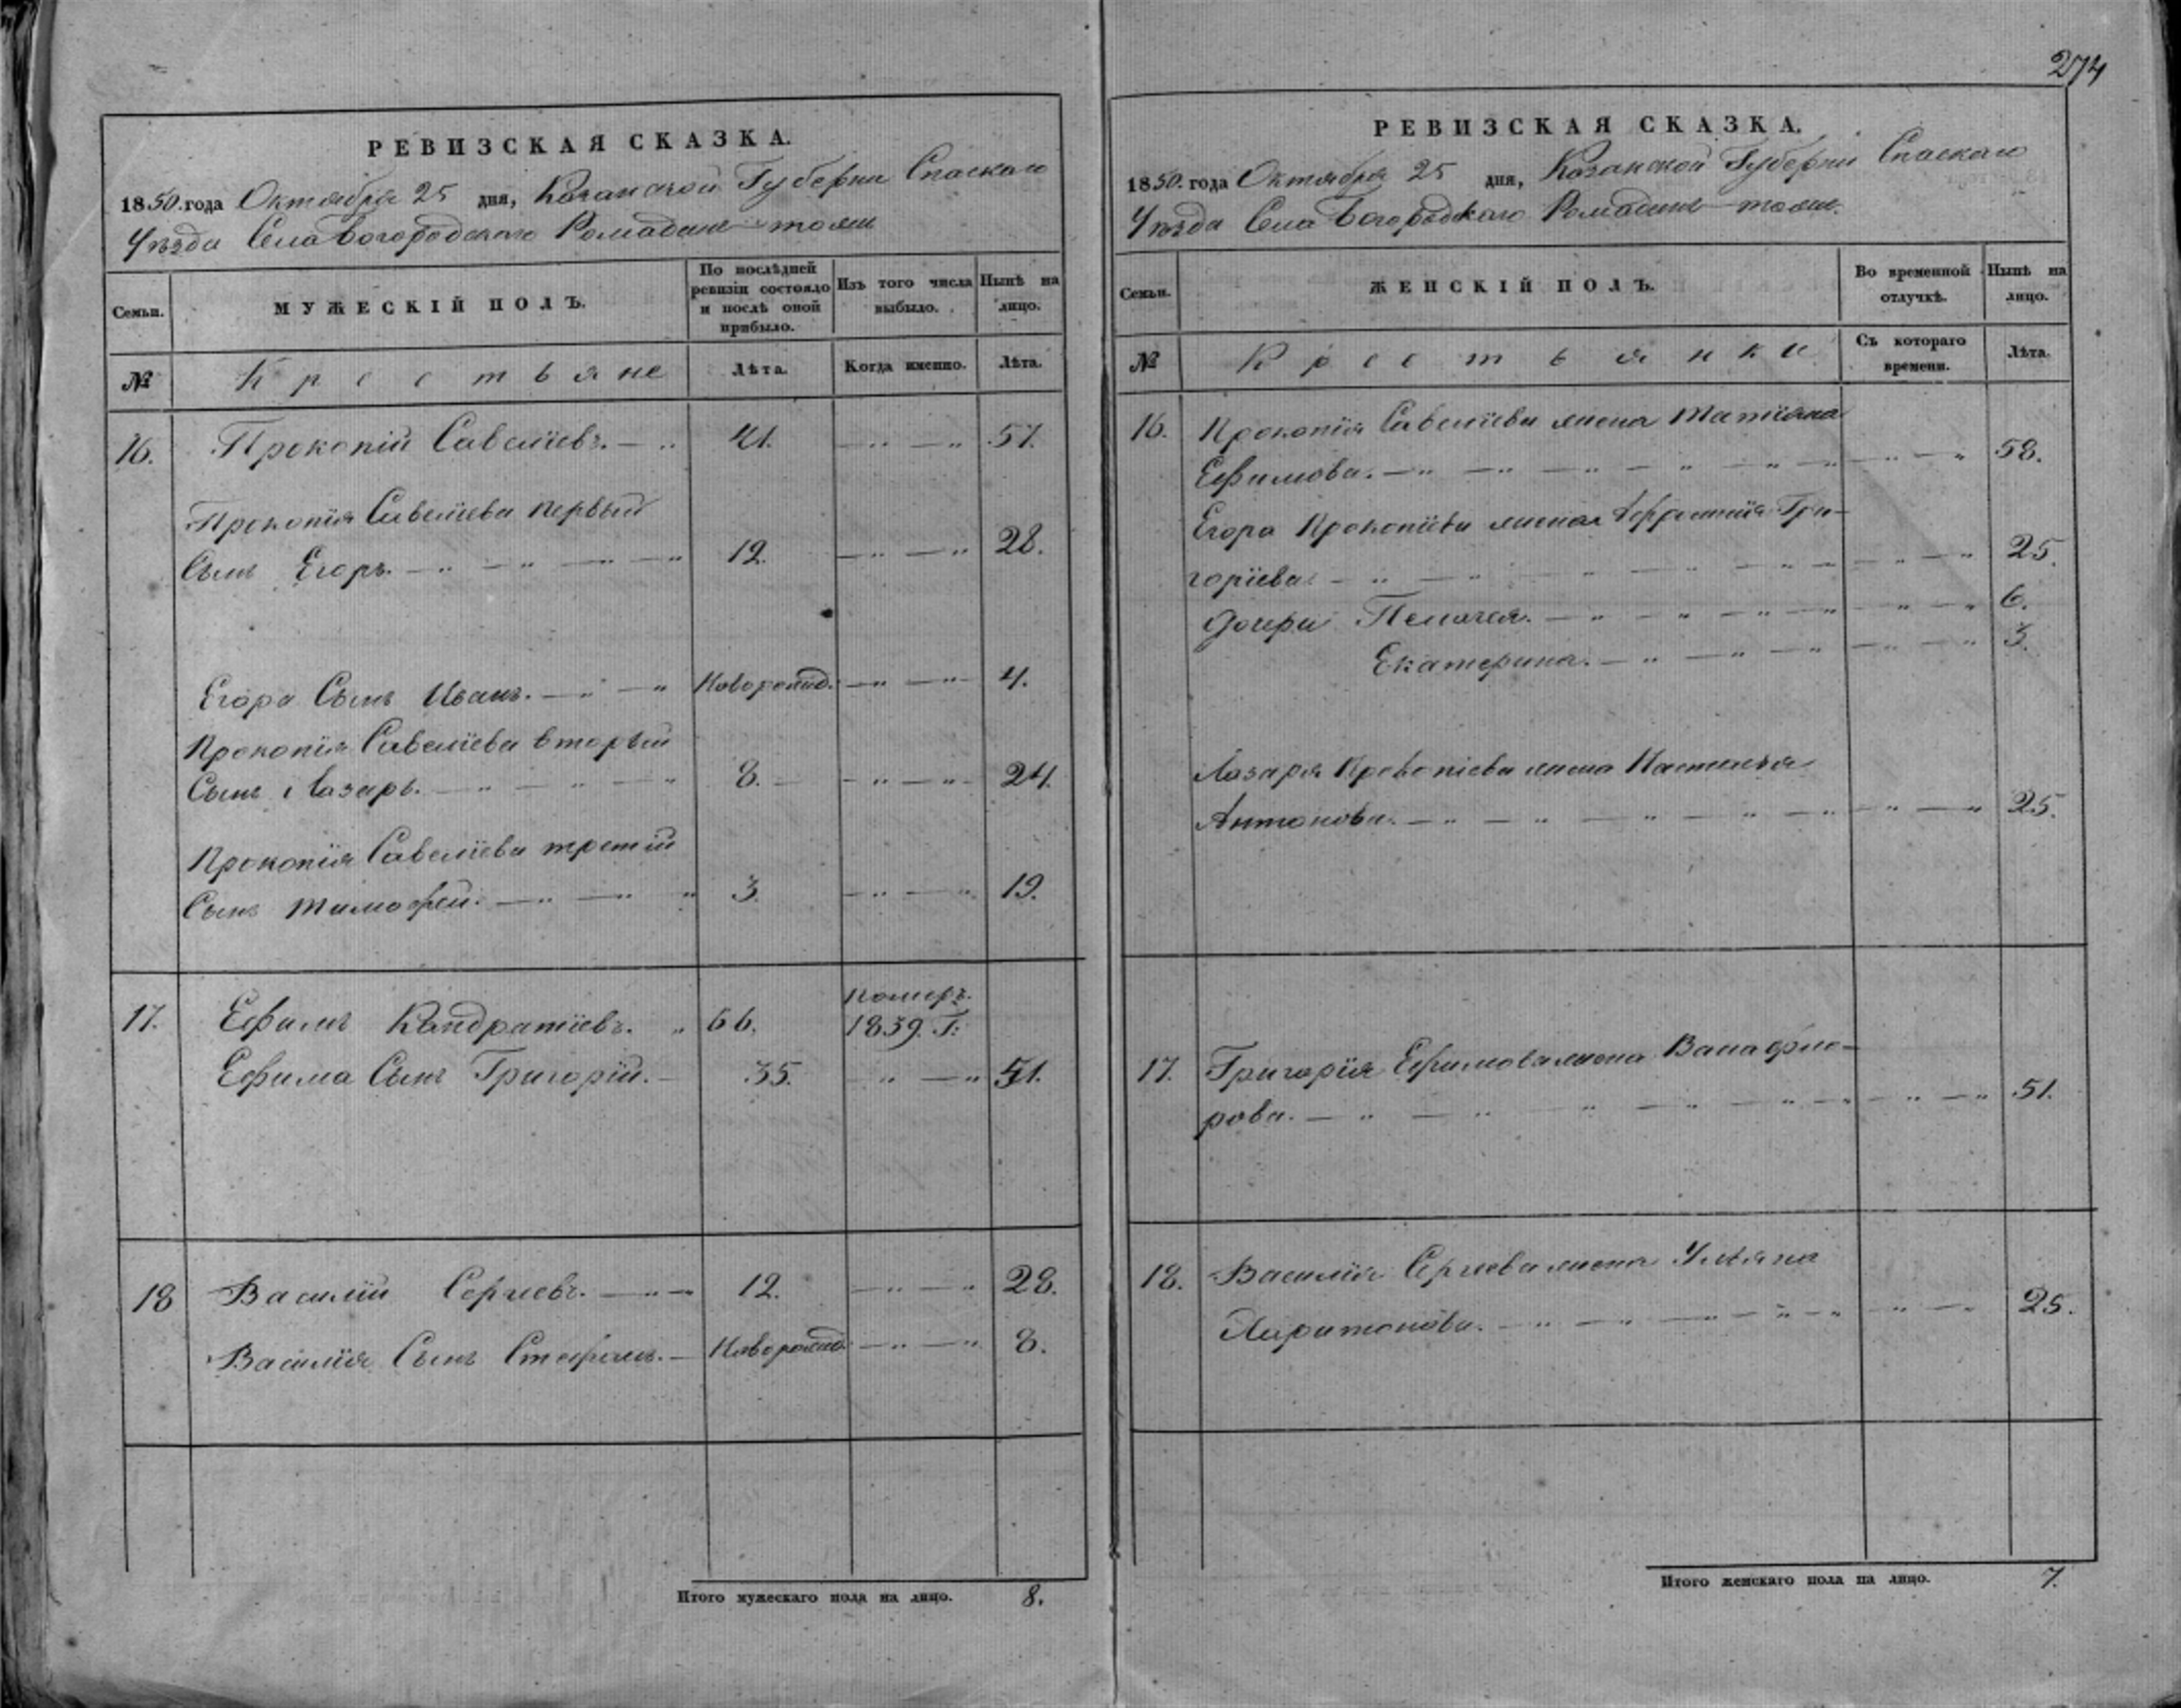 274
РЕВИЗСКАЯ СКАЗКА.
1850. года Октября 25 дня, Казанской Губерни Спаскаго
Уѣзда Села Богородскаго Ромадан тожъ
Семьи.
МУЖЕСКІЙ ПОЛЪ.
По послѣдней ревизіи состояло и послѣ оной прибыло.
Изъ того числа выбыло.
Нынѣ на лицо.
№
Крестьяне
Лѣта.
Когда именно.
Лѣта.
16. Прокопій Савеліевъ. 41. 57.
Прокопія Савелїева первый
Сынъ Егоръ. 12. 28.
Егора Сынъ Иванъ. Новорожд. 4.
Прокопія Савелїева вторый
Сынъ Лазарь. 8. 24.
Прокопія Савелїева третій
Сынъ Тимофей. 3. 19.
17. Ефимъ Кандратїевъ. 66. померъ.
1839. Г:
Ефима Сынъ Григорій. 35. 51.
18 Василій Сергиевъ. 12. 28.
Василія Сынъ Стефанъ. Новорожд. 8.
Итого мужескаго пола на лицо. 8.
РЕВИЗСКАЯ СКАЗКА.
1850. года Октября 25 дня, Казанской Губерни Спаскаго
Уѣзда Села Богородскаго Ромадан тожъ.
Семьи.
ЖЕНСКІЙ ПОЛЪ.
Во временной отлучкѣ.
Нынѣ на лицо.
№
Крестьянки
Съ котораго времени.
Лѣта.
16. Прокопія Савелїева жена Татїяна
Ефимова. 58.
Егора Прокопїева жена Гри-
горїева 25.
дочери Пелагея. 6.
Екатерина. 3.
Лазаря Прокопіева жена Настасья
Антонова. 25.
17. Григорїя Ефимова жена
рова. 51.
18. Василїя Сергиева жена Ульяна
Харитонова. 25.
Итого женскаго пола на лицо. 7.